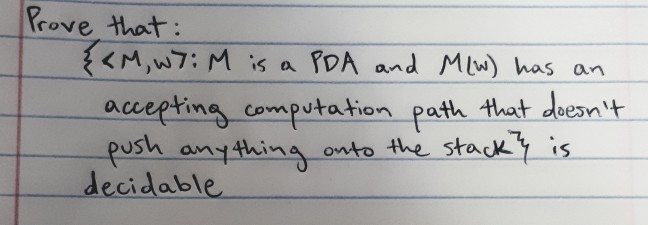 Prove that:
{<M,w>: M is a PDA and M(w) has an
accepting computation path that doesn't
push anything onto the stack} is
decidable